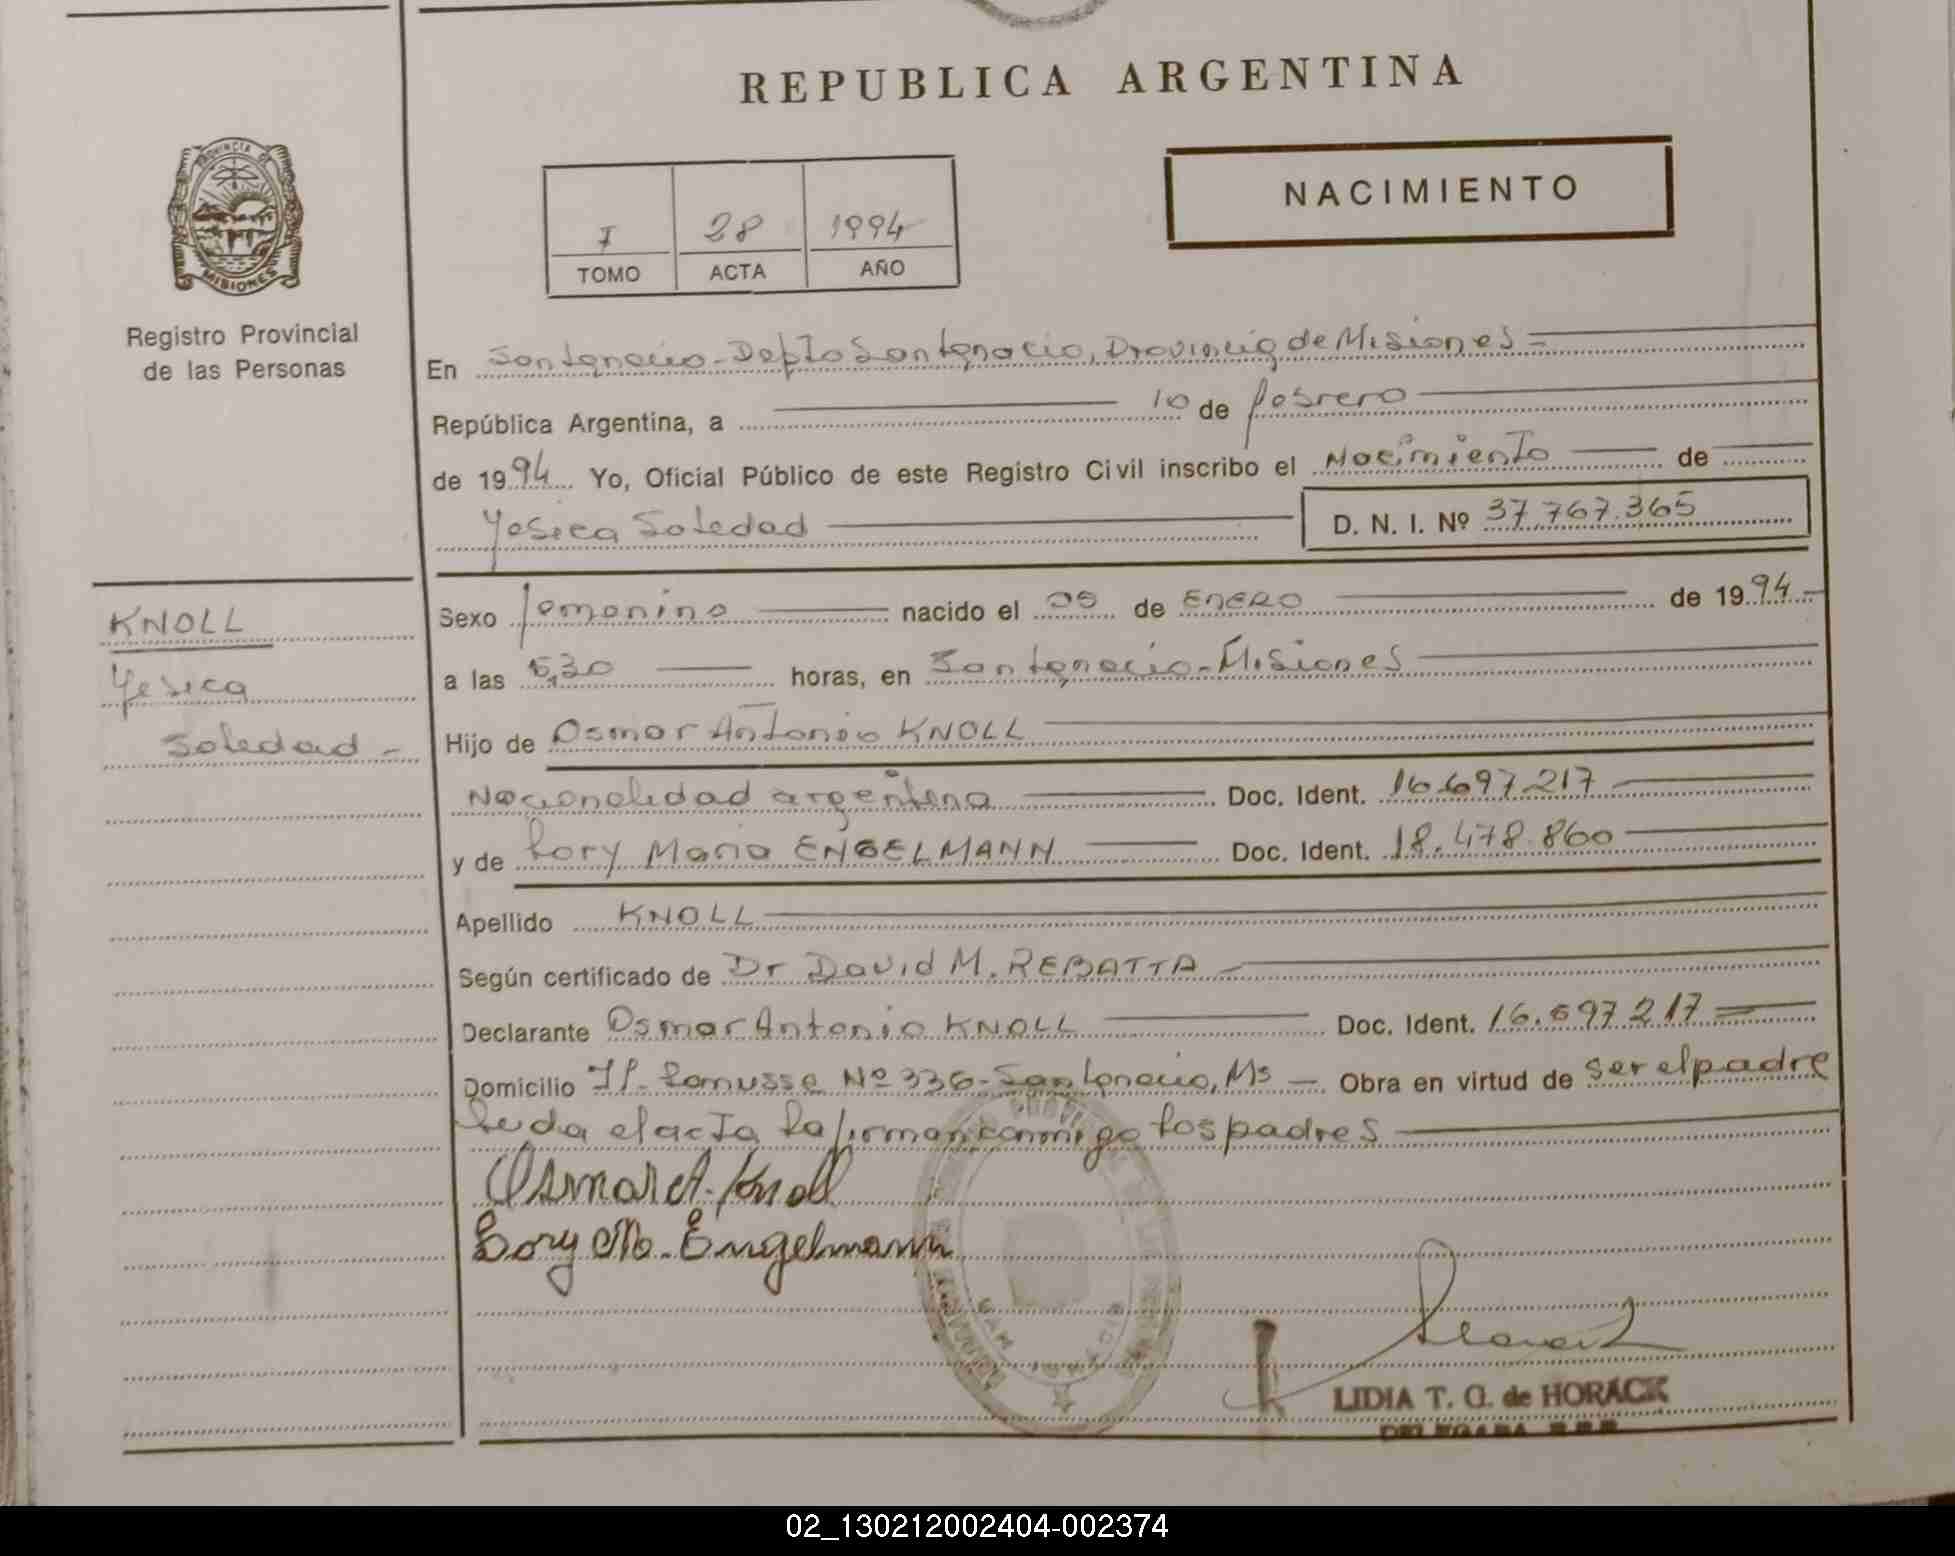 REPUBLICA ARGENTINA
PROVINCIA DE
MISIONES
Registro Provincial
de las Personas
I 28 1994
TOMO ACTA AÑO
NACIMIENTO
En San Ignacio - Depto San Ignacio, Provincia de Misiones =
República Argentina, a 10 de febrero
de 1994 Yo, Oficial Público de este Registro Civil inscribo el Nacimiento de
Yesica Soledad D. N. I. Nº 37.767.365
KNOLL
Yesica
Soledad -
Sexo femenino nacido el 05 de ENERO de 1994
a las 5,30 horas, en San Ignacio - Misiones
Hijo de Osmar Antonio KNOLL
Nacionalidad argentina Doc. Ident. 16.697.217
y de Lory Maria ENGELMANN Doc. Ident. 18.478.860
Apellido KNOLL
Según certificado de Dr David M. REBATTA
Declarante Osmar Antonio KNOLL Doc. Ident. 16.697.217
Domicilio Nº 336 - San Ignacio, Ms Obra en virtud de ser el padre
Leida el acta la firman conmigo los padres
Osmar A. Knoll
Lory M. Engelmann
SAN IGNACIO
LIDIA T. G. de HORACK
DELEGADA R.P.P.
02_130212002404-002374